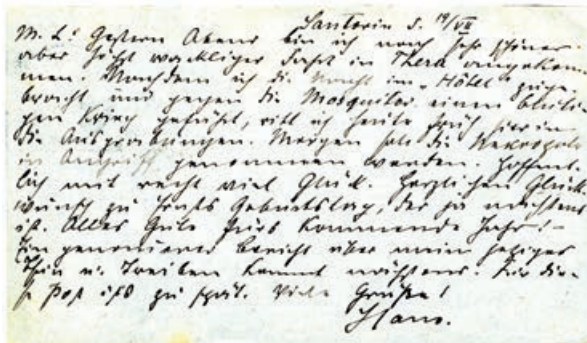 Santorin d. 19/VII
M. L.! Gestern Abend bin ich nach sehr schöner
aber sehr wackliger Fahrt in Thera angekom
men. Nachdem ich die Nacht im „Hôtel" zuge-
bracht und gegen die Mosquitos einen bluti-
gen Krieg geführt, ritt ich heute früh hier in
die Ausgrabungen. Morgen soll die Nekropole
in Angriff genommen werden. Hoffent-
lich mit recht viel Glück. Herzlichen Glück
wunsch zu Geburtstag, der ja nächstens
ist. Alles Gute fürs kommende Jahr! –
Ein genauerer Bericht über mein hiesiges
Thun u. Treiben kommt nächstens. Für die-
se Post ists zu spät. Viele Grüße!
Hans.